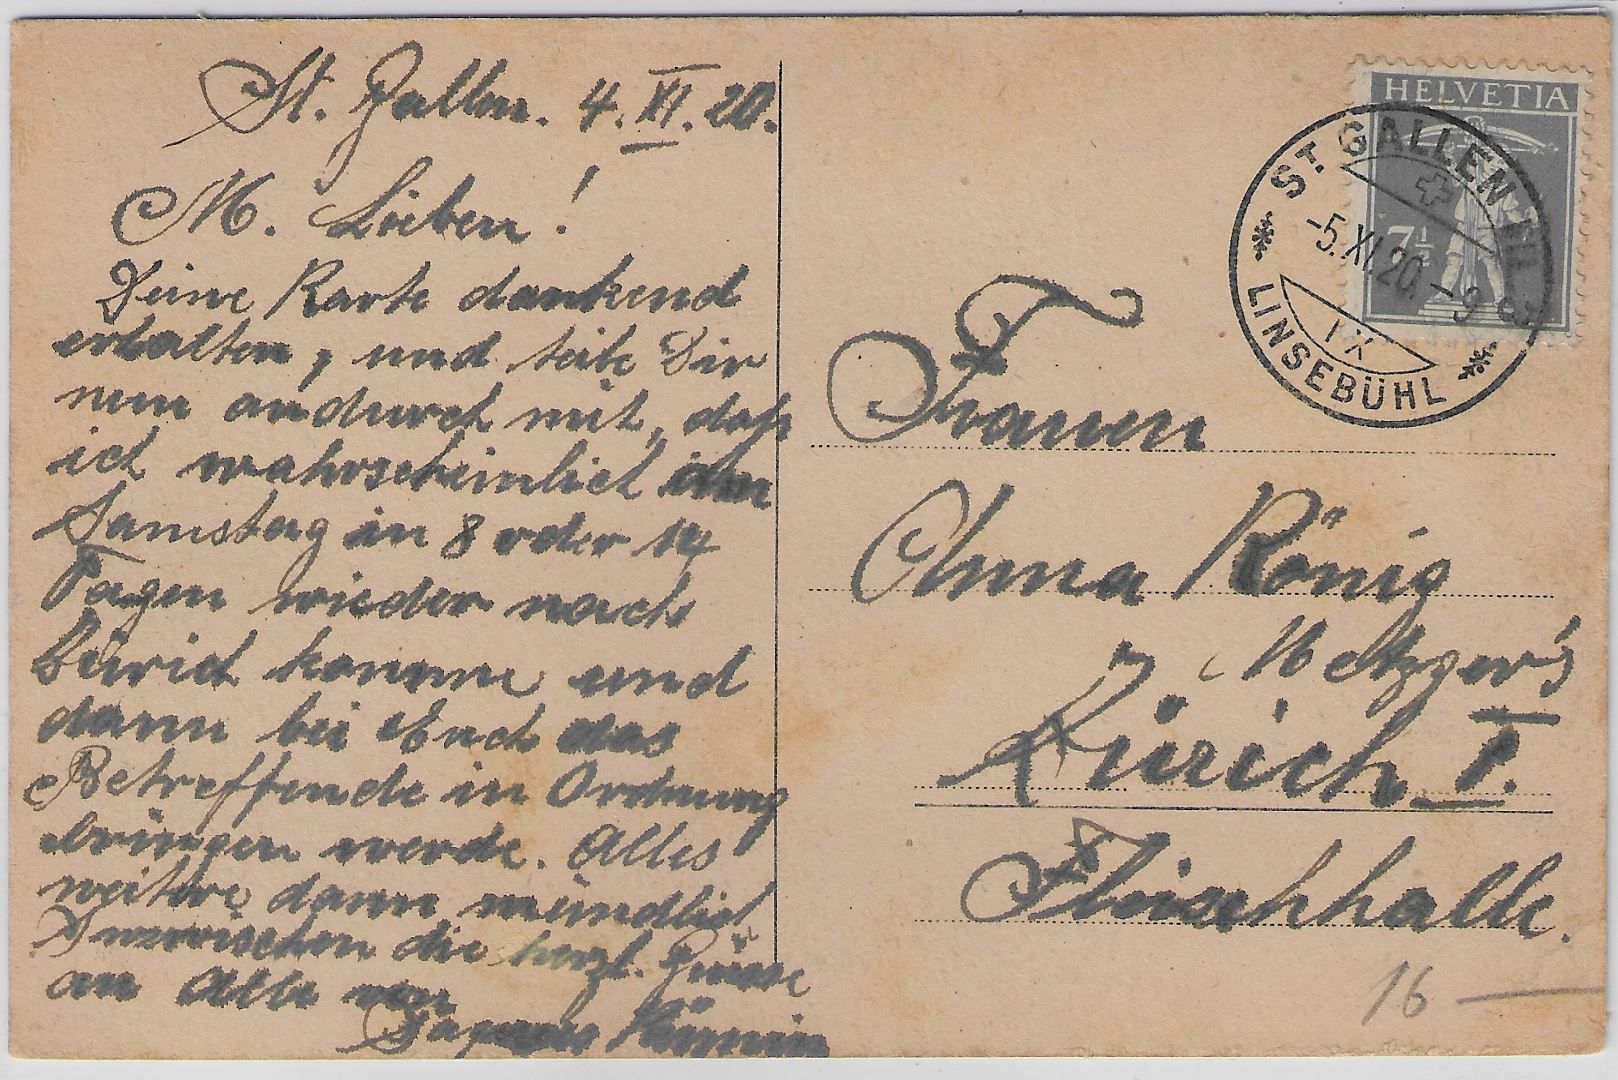 St. Gallen. 4. XI. 20.
M. Lieben!
Deine Karte dankend
erhalten, und teile Dir
nun andurch mit, daß
ich wahrscheinlich am
Samstag in 8 oder 14
Tagen wieder nach
Zürich komme und
dann bei Euch das
Betreffende in Ordnung
bringen werde. Alles
weitere dann mündlich
Inzwischen die herzl. Grüsse
an Alle von
HELVETIA
7½
ST. GALLEN
-5.XI.20.-9
LINSEBÜHL
Frauen
Anna König
Metzger's
Zürich I.
Fleischhalle.
16 —